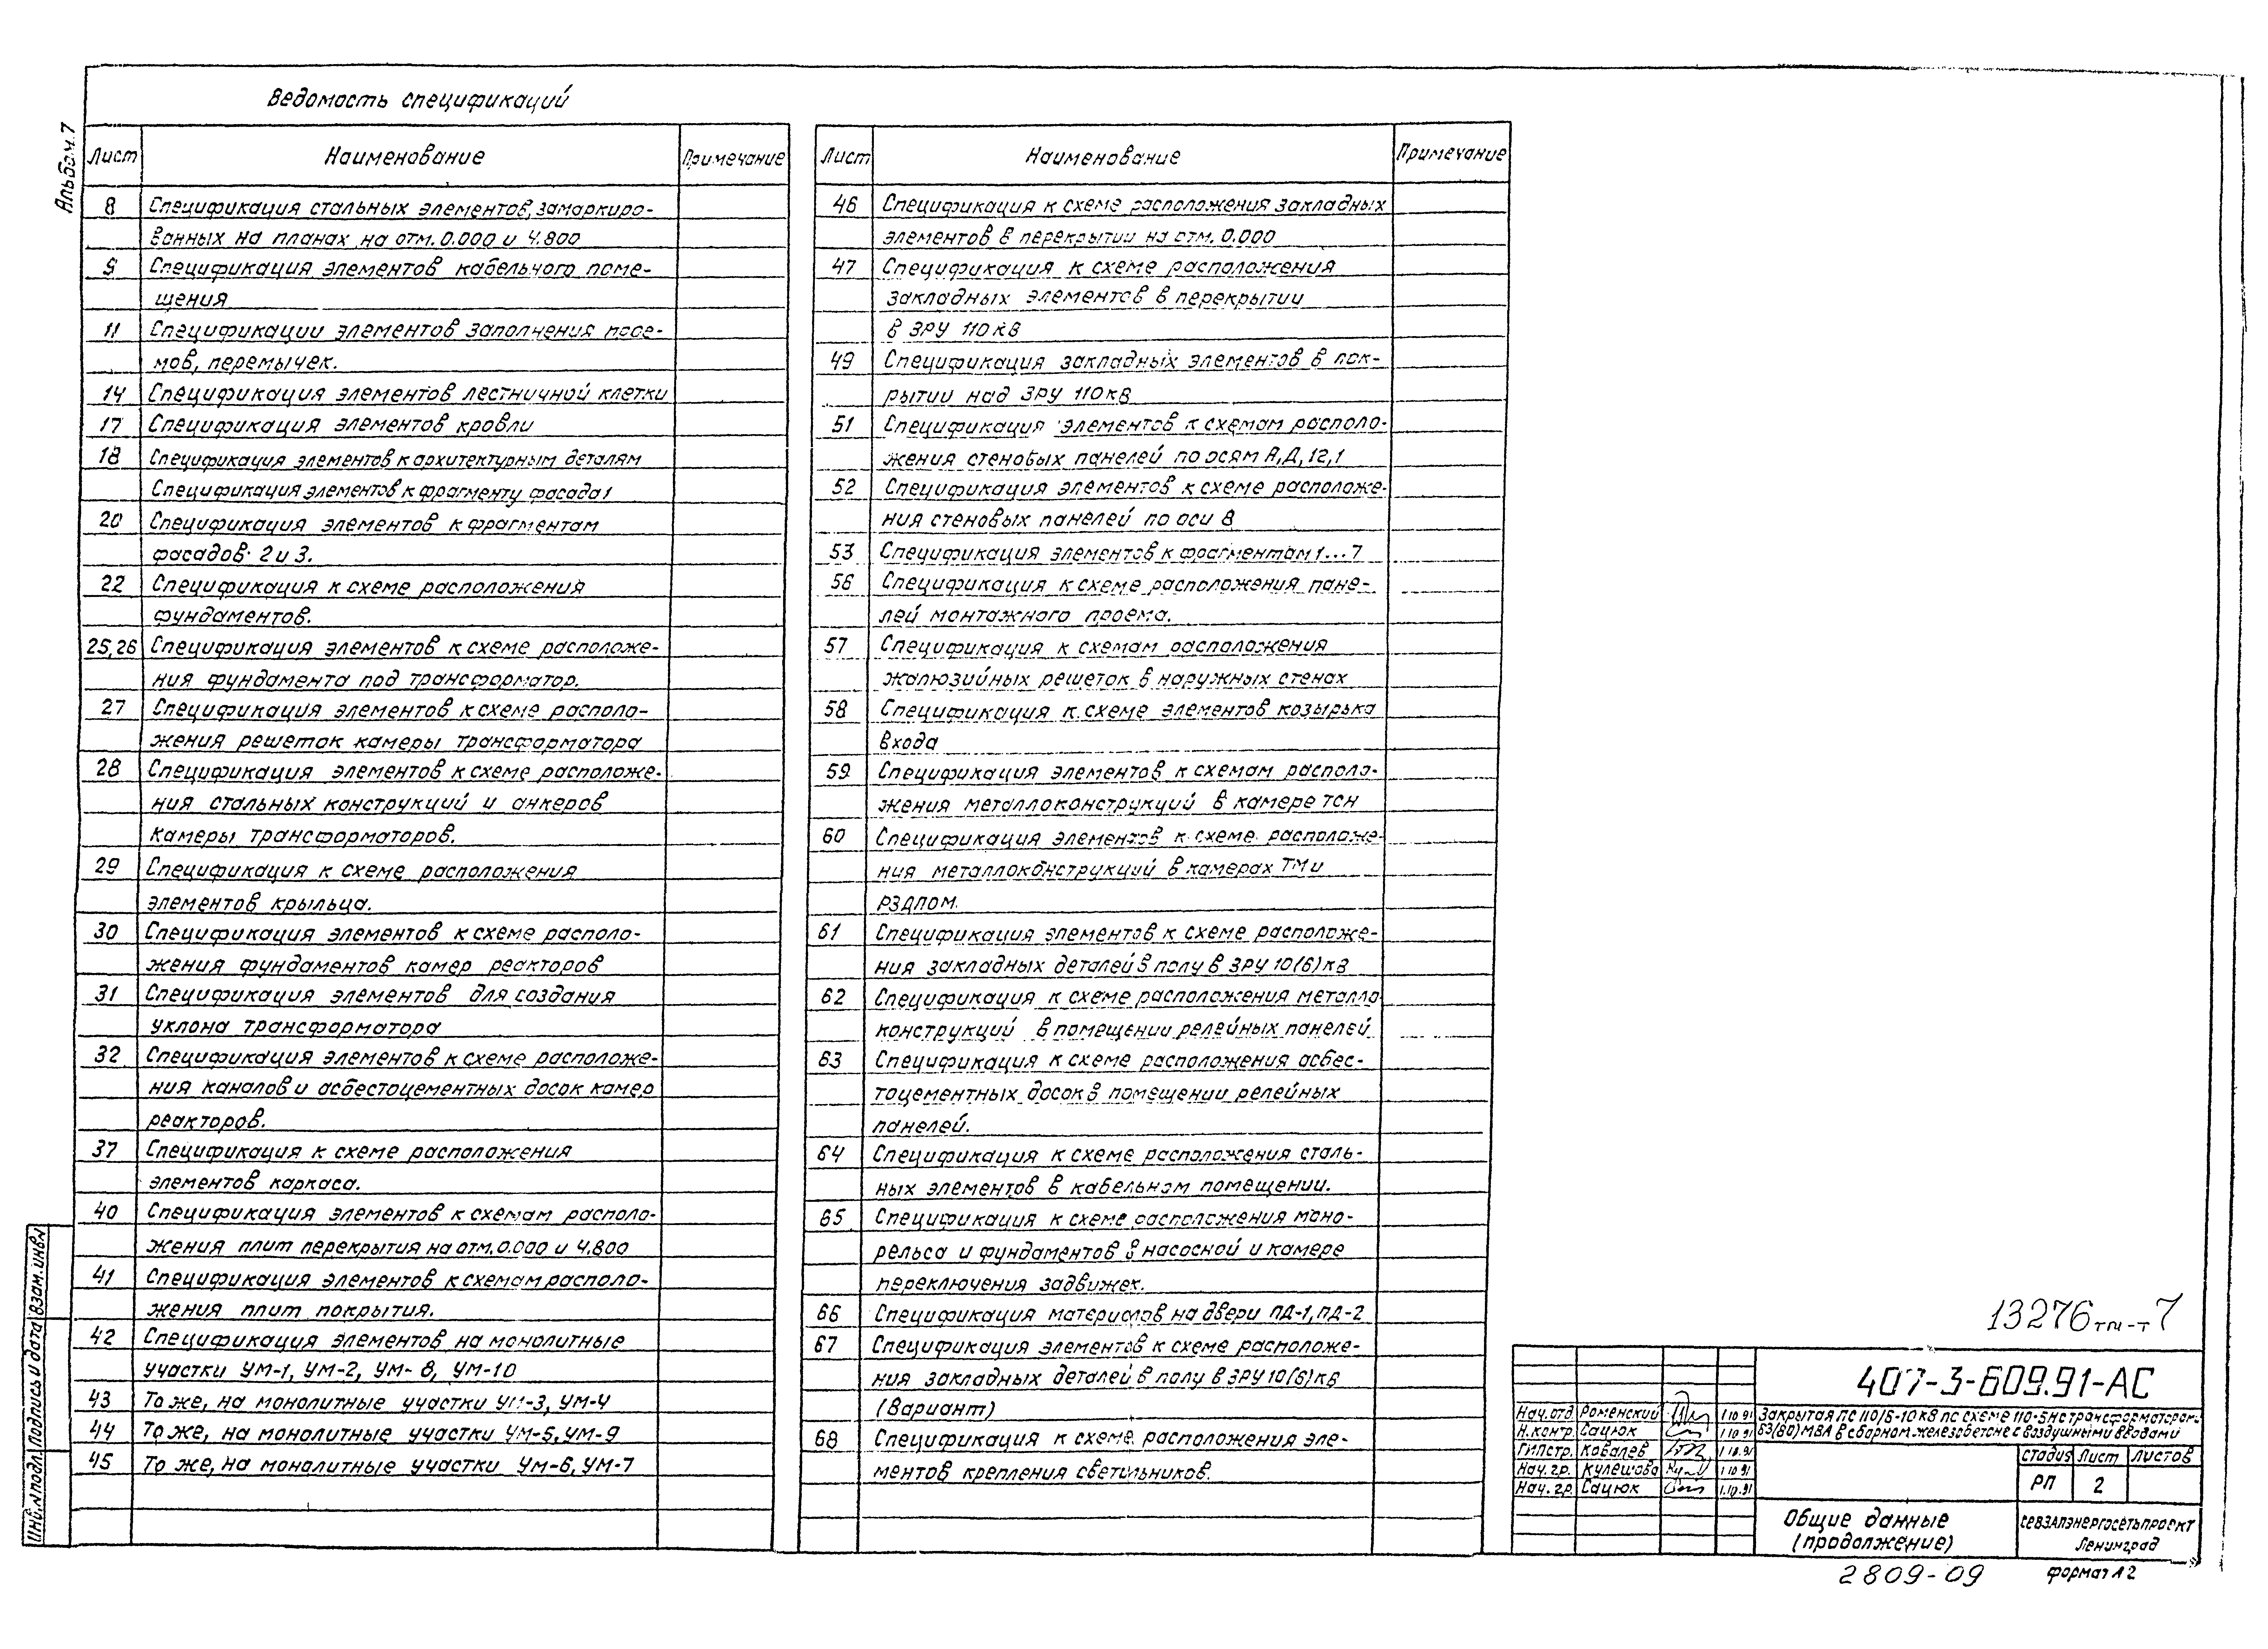 Альбом. 7
Ведомость спецификаций
Лист Наименование Примечание
8 Спецификация стальных элементов, замаркиро-
ванных на планах на отм. 0.000 и 4.800
9 Спецификация элементов кабельного поме-
щения
11 Спецификации элементов заполнения прое-
мов, перемычек.
14 Спецификация элементов лестничной клетки
17 Спецификация элементов кровли
18 Спецификация элементов к архитектурным деталям
Спецификация элементов к фрагменту фасада 1
20 Спецификация элементов к фрагментам
фасадов 2 и 3.
22 Спецификация к схеме расположения
фундаментов.
25,26 Спецификация элементов к схеме расположе-
ния фундамента под трансформатор.
27 Спецификация элементов к схеме располо-
жения решеток камеры трансформатора
28 Спецификация элементов к схеме расположе-
ния стальных конструкций и анкеров
камеры трансформаторов.
29 Спецификация к схеме расположения
элементов крыльца.
30 Спецификация элементов к схеме располо-
жения фундаментов камер реакторов
31 Спецификация элементов для создания
уклона трансформатора
32 Спецификация элементов к схеме расположе-
ния каналов и асбестоцементных досок камер
реакторов.
37 Спецификация к схеме расположения
элементов каркаса.
40 Спецификация элементов к схемам располо-
жения плит перекрытия на отм. 0.000 и 4.800
41 Спецификация элементов к схемам располо-
жения плит покрытия.
42 Спецификация элементов на монолитные
участки УМ-1, УМ-2, УМ-8, УМ-10
43 То же, на монолитные участки УМ-3, УМ-4
44 То же, на монолитные участки УМ-5, УМ-9
45 То же, на монолитные участки УМ-6, УМ-7
Лист Наименование Примечание
46 Спецификация к схеме расположения закладных
элементов в перекрытии на отм. 0.000
47 Спецификация к схеме расположения
закладных элементов в перекрытии
в ЗРУ 110 кВ
49 Спецификация закладных элементов в пок-
рытии над ЗРУ 110 кВ
51 Спецификация элементов к схемам располо-
жения стеновых панелей по осям А, Д, 12, 1
52 Спецификация элементов к схеме расположе-
ния стеновых панелей по оси В
53 Спецификация элементов к фрагментам 1...7
56 Спецификация к схеме расположения пане-
лей монтажного проема.
57 Спецификация к схемам расположения
жалюзийных решеток в наружных стенах
58 Спецификация к схеме элементов козырька
входа
59 Спецификация элементов к схемам располо-
жения металлоконструкций в камере ТСН
60 Спецификация элементов к схеме расположе-
ния металлоконструкций в камерах ТМ и
РЗДПОМ.
61 Спецификация элементов к схеме расположе-
ния закладных деталей в полу в ЗРУ 10(6) кВ
62 Спецификация к схеме расположения металло
конструкций в помещении релейных панелей
63 Спецификация к схеме расположения асбес-
тоцементных досок в помещении релейных
панелей.
64 Спецификация к схеме расположения сталь-
ных элементов в кабельном помещении.
65 Спецификация к схеме расположения моно-
рельса и фундаментов в насосной и камере
переключения задвижек.
66 Спецификация материалов на двери ПД-1, ПД-2
67 Спецификация элементов к схеме расположе-
ния закладных деталей в полу в ЗРУ 10(6) кВ
(вариант)
68 Спецификация к схеме расположения эле-
ментов крепления светильников.
Инв. N подл. Подпись и дата Взам. инв N
13276 тм-т 7
407-3-609.91-АС
Нач. отд Роменский 1.10.91
Н. контр. Сацюк 1.10.91
ГИПстр. Ковалев 1.10.91
Нач. гр. Кулешова 1.10.91
Нач. гр. Сацюк 1.10.91
Закрытая ПС 110/6-10 кВ по схеме 110-5Н с трансформаторами
63(80) МВА в сборном железобетоне с воздушными вводами
Стадия Лист Листов
РП 2
Общие данные
(продолжение)
СЕВЗАПЭНЕРГОСЕТЬПРОЕКТ
Ленинград
2809-09
формат А2